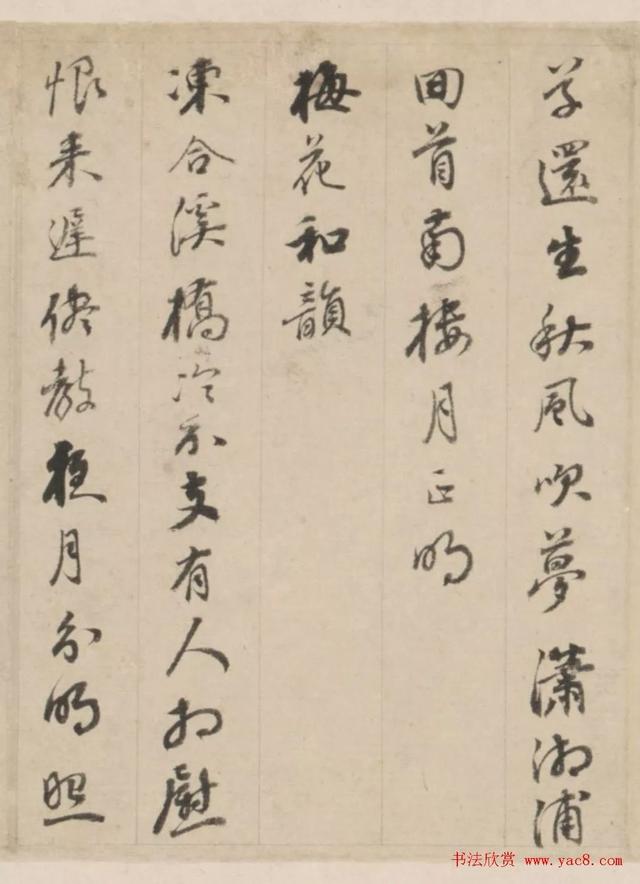 草還生秋風吹夢瀟湘浦
回首南樓月正明
梅花和韻
凍合溪橋冷不支有人相慰
恨来遲儘教月分明照
书法欣赏 www.yac8.com